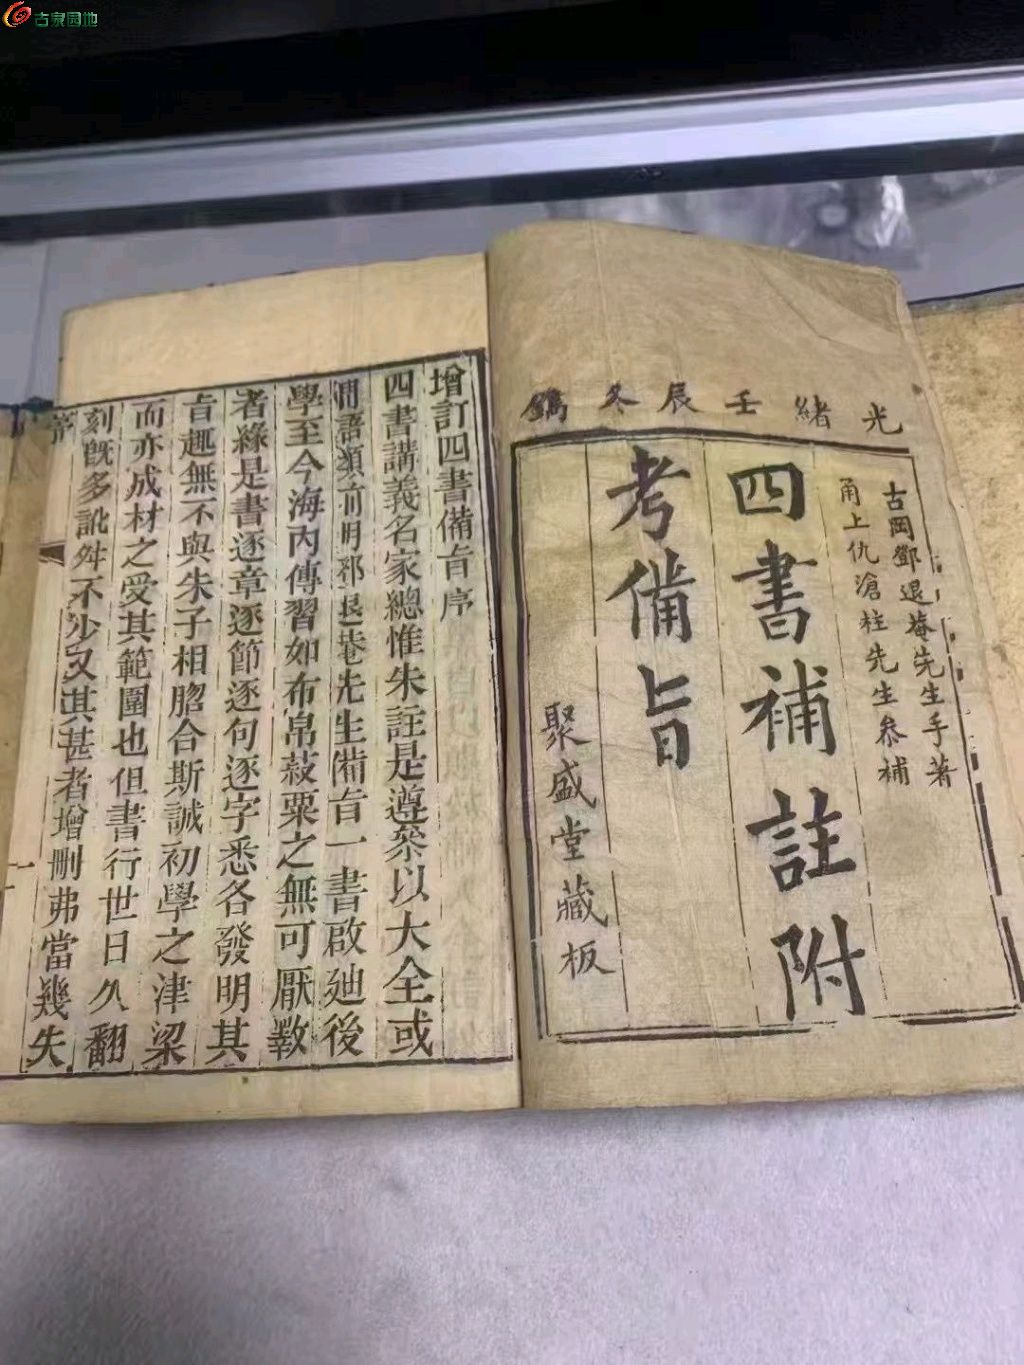 古泉园地
光緒壬辰冬鐫
古岡鄧退菴先生手著
甬上仇滄柱先生叅補
四書補註附
考備旨
聚盛堂藏板
增訂四書備旨序
四書講義名家總惟朱註是遵叅以大全或
問語類前明鄧退菴先生備旨一書啟廸後
學至今海內傳習如布帛菽粟之無可厭斁
者緣是書逐章逐節逐句逐字悉各發明其
旨趣無不與朱子相脗合斯誠初學之津梁
而亦成材之受其範圍也但書行世日久翻
刻既多訛舛不少又其甚者增刪弗當幾失
序
一